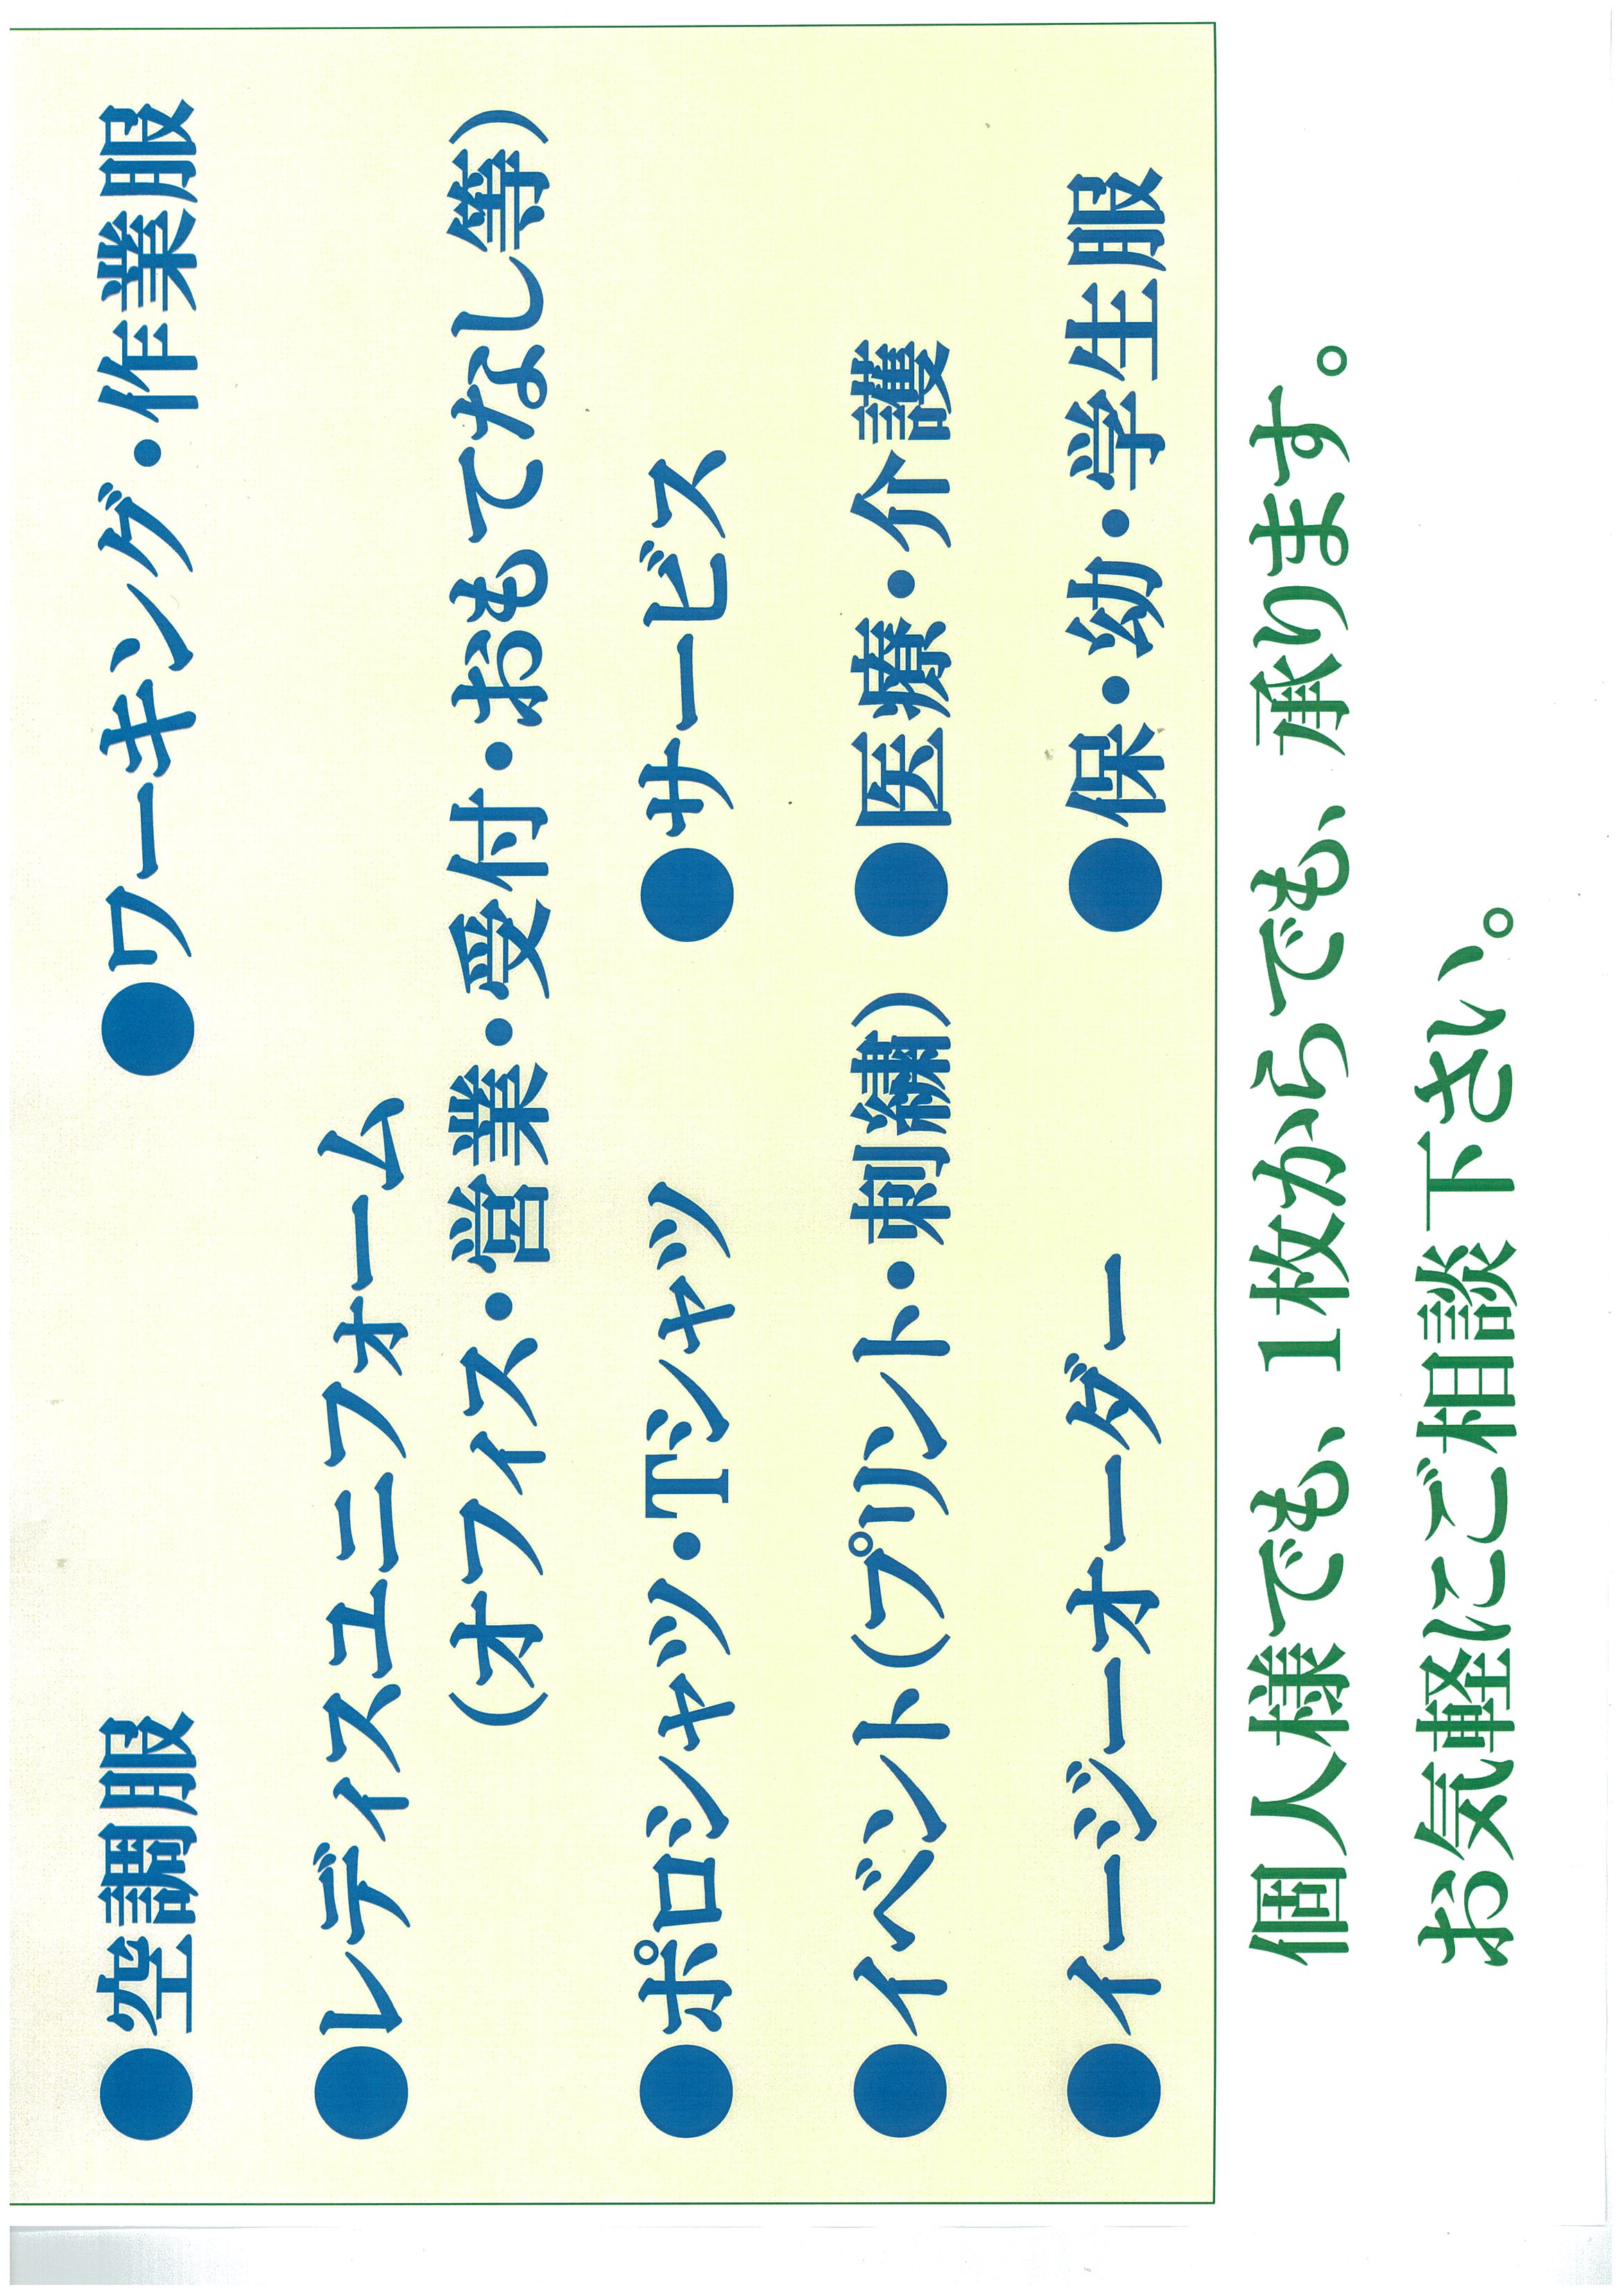 ●空調服　●ワーキング・作業服
●レディスユニフォーム
(オフィス・営業・受付・おもてなし等)
●ポロシャツ・Tシャツ　●サービス
●イベント(プリント・刺繍)　●医療・介護
●イージーオーダー　●保・幼・学生服
個人様でも、1枚からでも、承ります。
お気軽にご相談下さい。